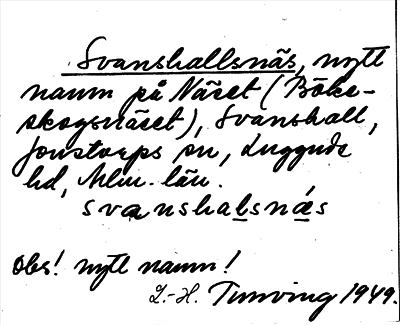 Svanshallsnäs, nytt
namn på Näset (Böke-
skogsnäset), Svanshall,
Jonstorps sn, Luggude
hd, Mlm. län.
svanshalsnäs
Obs! nytt namn!
L.-H. Tunving 1949.